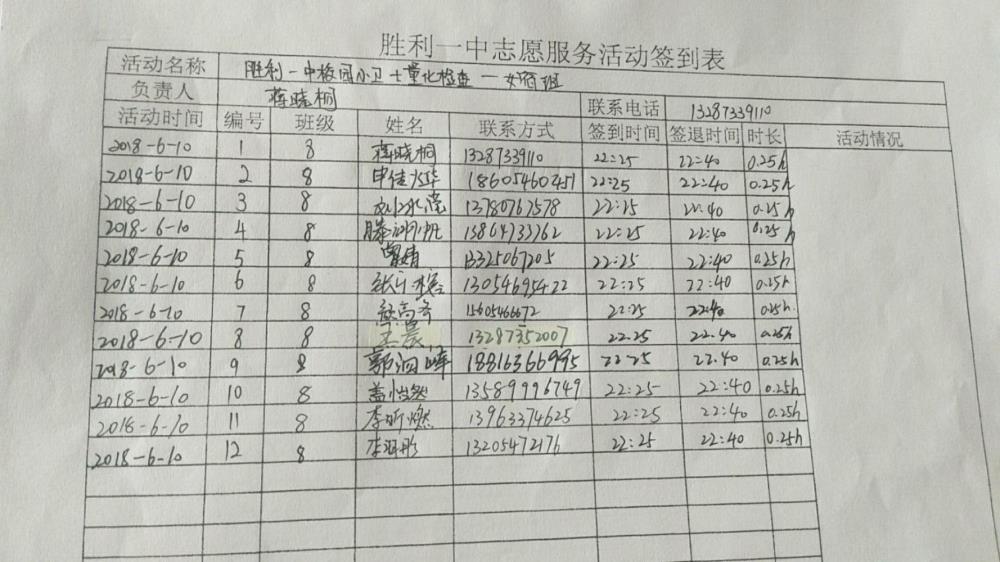 胜利一中志愿服务活动签到表
活动名称 胜利一中校园小卫士量化检查一女宿班
负责人 蒋晓桐 联系电话 13287339110
活动时间 编号 班级 姓名 联系方式 签到时间 签退时间 时长 活动情况
2018-6-10 1 8 蒋晓桐 13287339110 22:25 22:40 0.25h
2018-6-10 2 8 申佳烨 18605460451 22:25 22:40 0.25h
2018-6-10 3 8 13780767578 22:25 22:40 0.25h
2018-6-10 4 8 13864733762 22:25 22:40 0.25h
2018-6-10 5 8 曾婧 13325067205 22:25 22:40 0.25h
2018-6-10 6 8 13054695422 22:25 22:40 0.25h
2018-6-10 7 8 15605466672 22:25 22:40 0.25h
2018-6-10 8 8 王晨 13287352007 22:25 22:40 0.25h
2018-6-10 9 8 郭润峰 18816366995 22:25 22:40 0.25h
2018-6-10 10 8 盖怡然 13589996749 22:25 22:40 0.25h
2018-6-10 11 8 李昕燃 13963374625 22:25 22:40 0.25h
2018-6-10 12 8 李羽彤 13205472176 22:25 22:40 0.25h